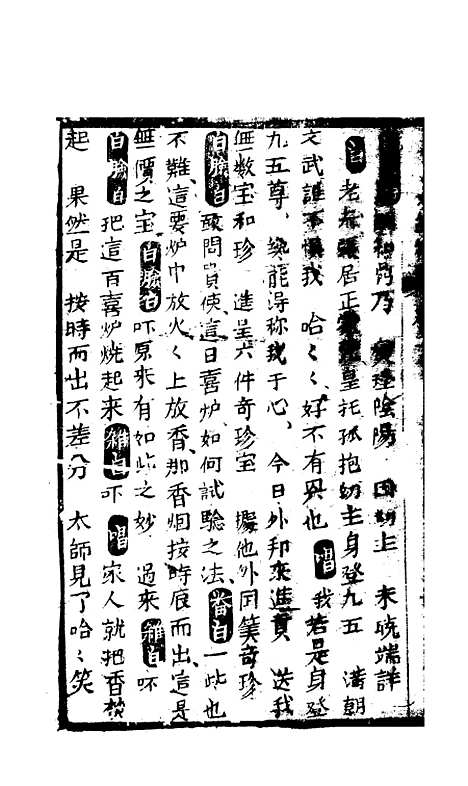 乃 燮理陰陽 因幼主 未曉端詳
白 老夫張居正 皇托孤抱幼主身登九五 滿朝
文武誰不懼我 哈〱〱好不有興也 唱 我若是身登
九五尊、樂能得称我于心、今日外邦來進貢 送我
無数宝和珍 進呈六件奇珍宝 據他外囯異奇珍
白臉白 動問貴使、這日喜炉、如何試驗之法、番白 一些也
不難、這要炉巾放火〱上放香、那香烟按時辰而出、這是
無價之宝 白臉白 吓原來有如此之妙 過來 雜白 吓
白臉白 把這百喜炉燒起來 雜白 吓 唱 家人就把香焚
起 果然是 按時而出不差分 太師見了哈〱笑